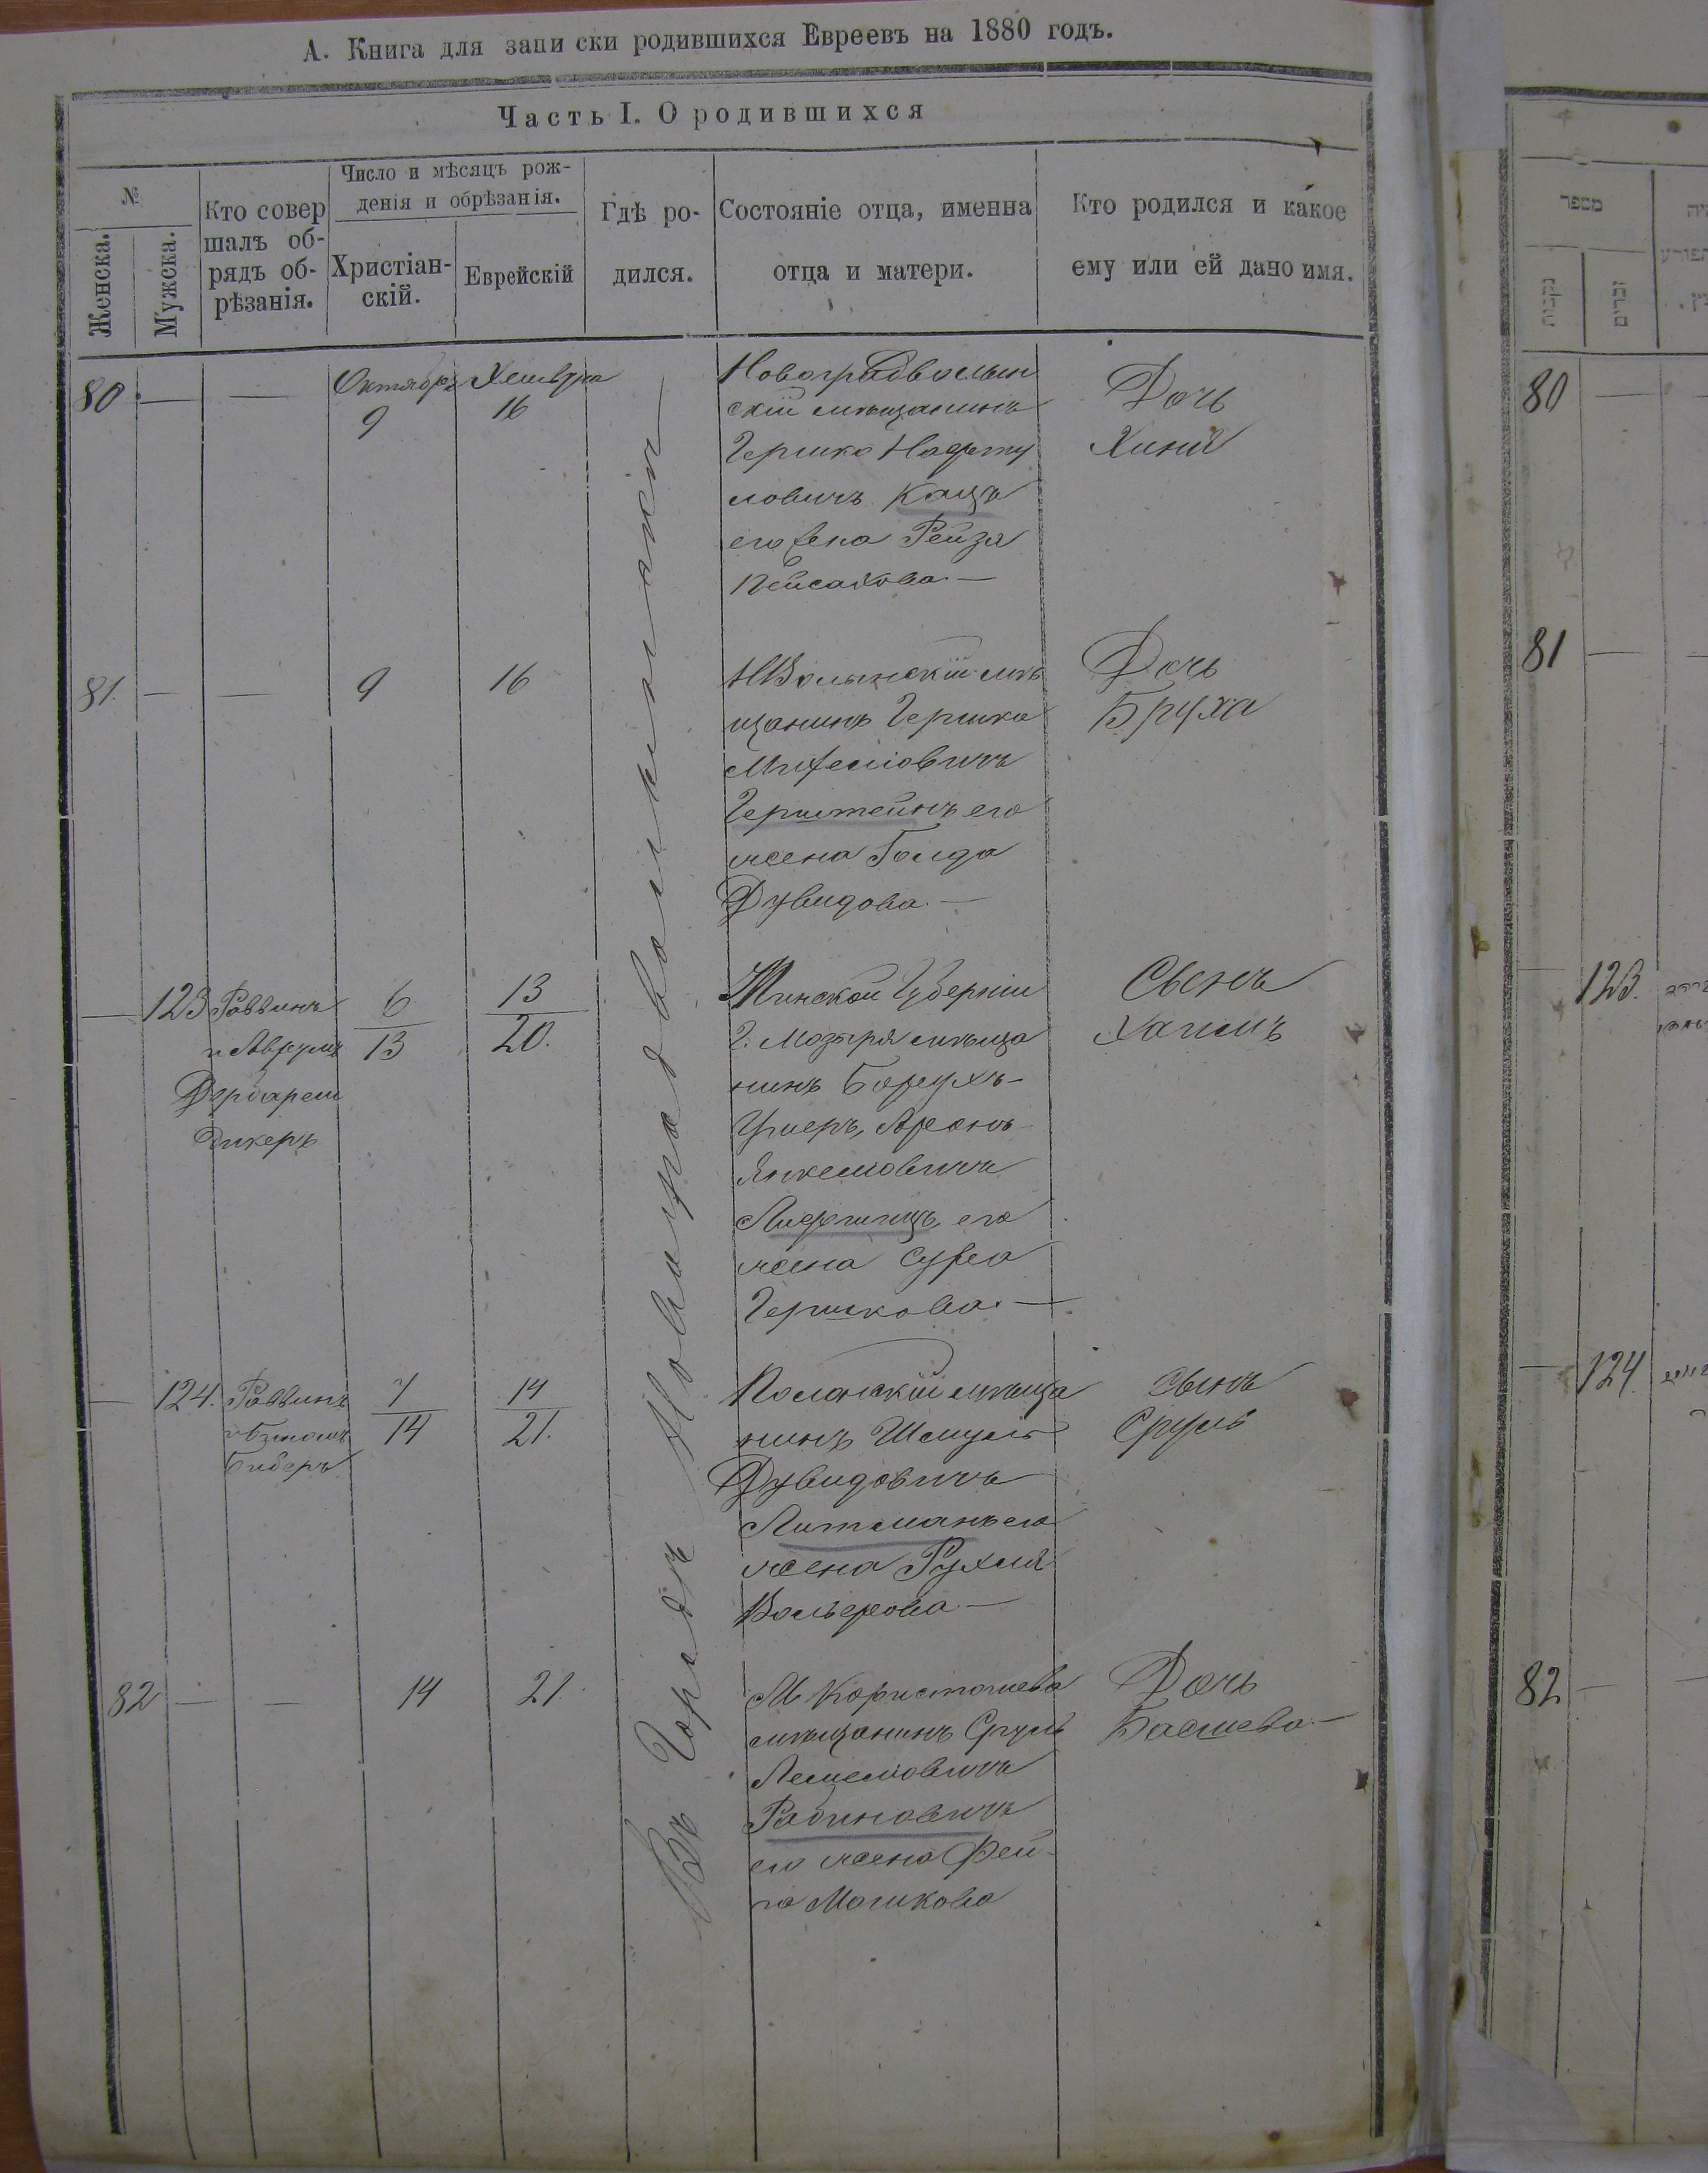 А. Книга для запи ски родившихся Евреевъ на 1880 годъ.
Часть I. О родившихся
№
Женска.
Мужска.
Кто совер
шалъ об-
рядъ об-
рѣзанія.
Число и мѣсяцъ рож-
денія и обрѣзанія.
Христіан-
скій.
Еврейскій
Гдѣ ро-
дился.
Состояніе отца, именна
отца и матери.
Кто родился и какое
ему или ей дано имя.
Въ Городѣ Новоградволынскѣ
80
—
—
Октября
9
Хешвана
16
Новоградволын
скій мѣщанинъ
Гершко Нафту
ловичъ Кацъ
его жена Рейза
Пейсахова —
Дочь
Хиня
81.
—
—
9
16
НВолынскій мѣ
щанинъ Гершко
Герштейнъ его
жена Голда
Дувидова —
Дочь
Бруха
—
123
Раввинъ
и Аврумъ
Дербарем
дикеръ
6
13
13
20.
Минской Губерніи
Г. Мозыря мѣща
нинъ Борухъ-
Ушеръ, Аронъ
Янкелювичъ
Лифшицъ, его
жена Сура
Гершкова. —
Сынъ
Хаимъ
—
124.
Раввинъ
Биберъ
7
14
14
21.
Полонскій мѣща
нинъ Шмуль
Дувидовичъ
Литманъ его
жена Рухля
Вольфова —
Сынъ
Сруль
82
—
—
14
21.
М. Користошева
мѣщанинъ Сруль
Рабиновичъ
его жена Фей
га Мошкова
Дочь
Басшева —
מספר
80
—
81
—
—
123.
—
124.
82
—